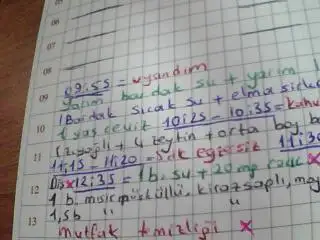 05
06
07
08
09 09:55 = uyandım
yarım bardak su + yarım
10 1 Bardak sıcak su + elma
1 yaş ceviz 10:25 - 10:35 = kahv
+ 4 zeytin + orta boy
11 11:15 - 11:20 = 5 dk egzersiz 11:30
12 12:35 = 1 b. su + 20 mg
1 b. mısır püsküllü, kiraz saplı,
13 1,5 b " "
Mutfak temizliği x